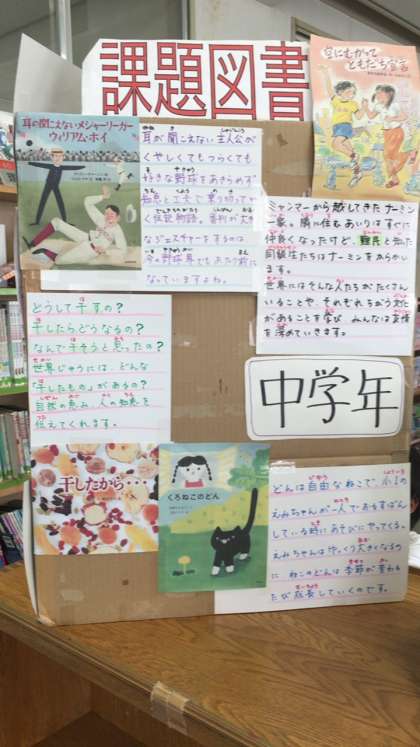 課題図書
耳の聞こえないメジャーリーガー
ウィリアム・ホイ
耳が聞こえない主人公が
くやしくてもつらくても
好きな野球をあきらめず
知恵と工夫で乗り切ってゆ
く伝記物語。審判が大き
なジェスチャーをするのは
今の野球界でもあたり前に
なっていますよね。
空にむかって
ともだち宣言
ミャンマーから越してきたナーミン
一家。隣に住むあいりはすぐに
仲良くなったけど、難民と知った
同級生たちはナーミンをからかい
ます。
世界にはそんな人たちがたくさん
いることや、それぞれちがう文化
があることを学び みんなは友情
を深めていきます。
どうして干すの?
干したらどうなるの?
なんで干そうと思ったの?
世界じゅうには、どんな
「干したもの」があるの?
自然の恵み、人の知恵を
伝えてくれます。
中学年
干したから・・・
くろねこのどん
どんは自由なねこで、小1の
えみちゃんが一人でおるすばん
している時にあそびにやってくる。
えみちゃんはゆっくり大きくなるの
に ねこのどんは 季節が変わる
たび成長していくのです。